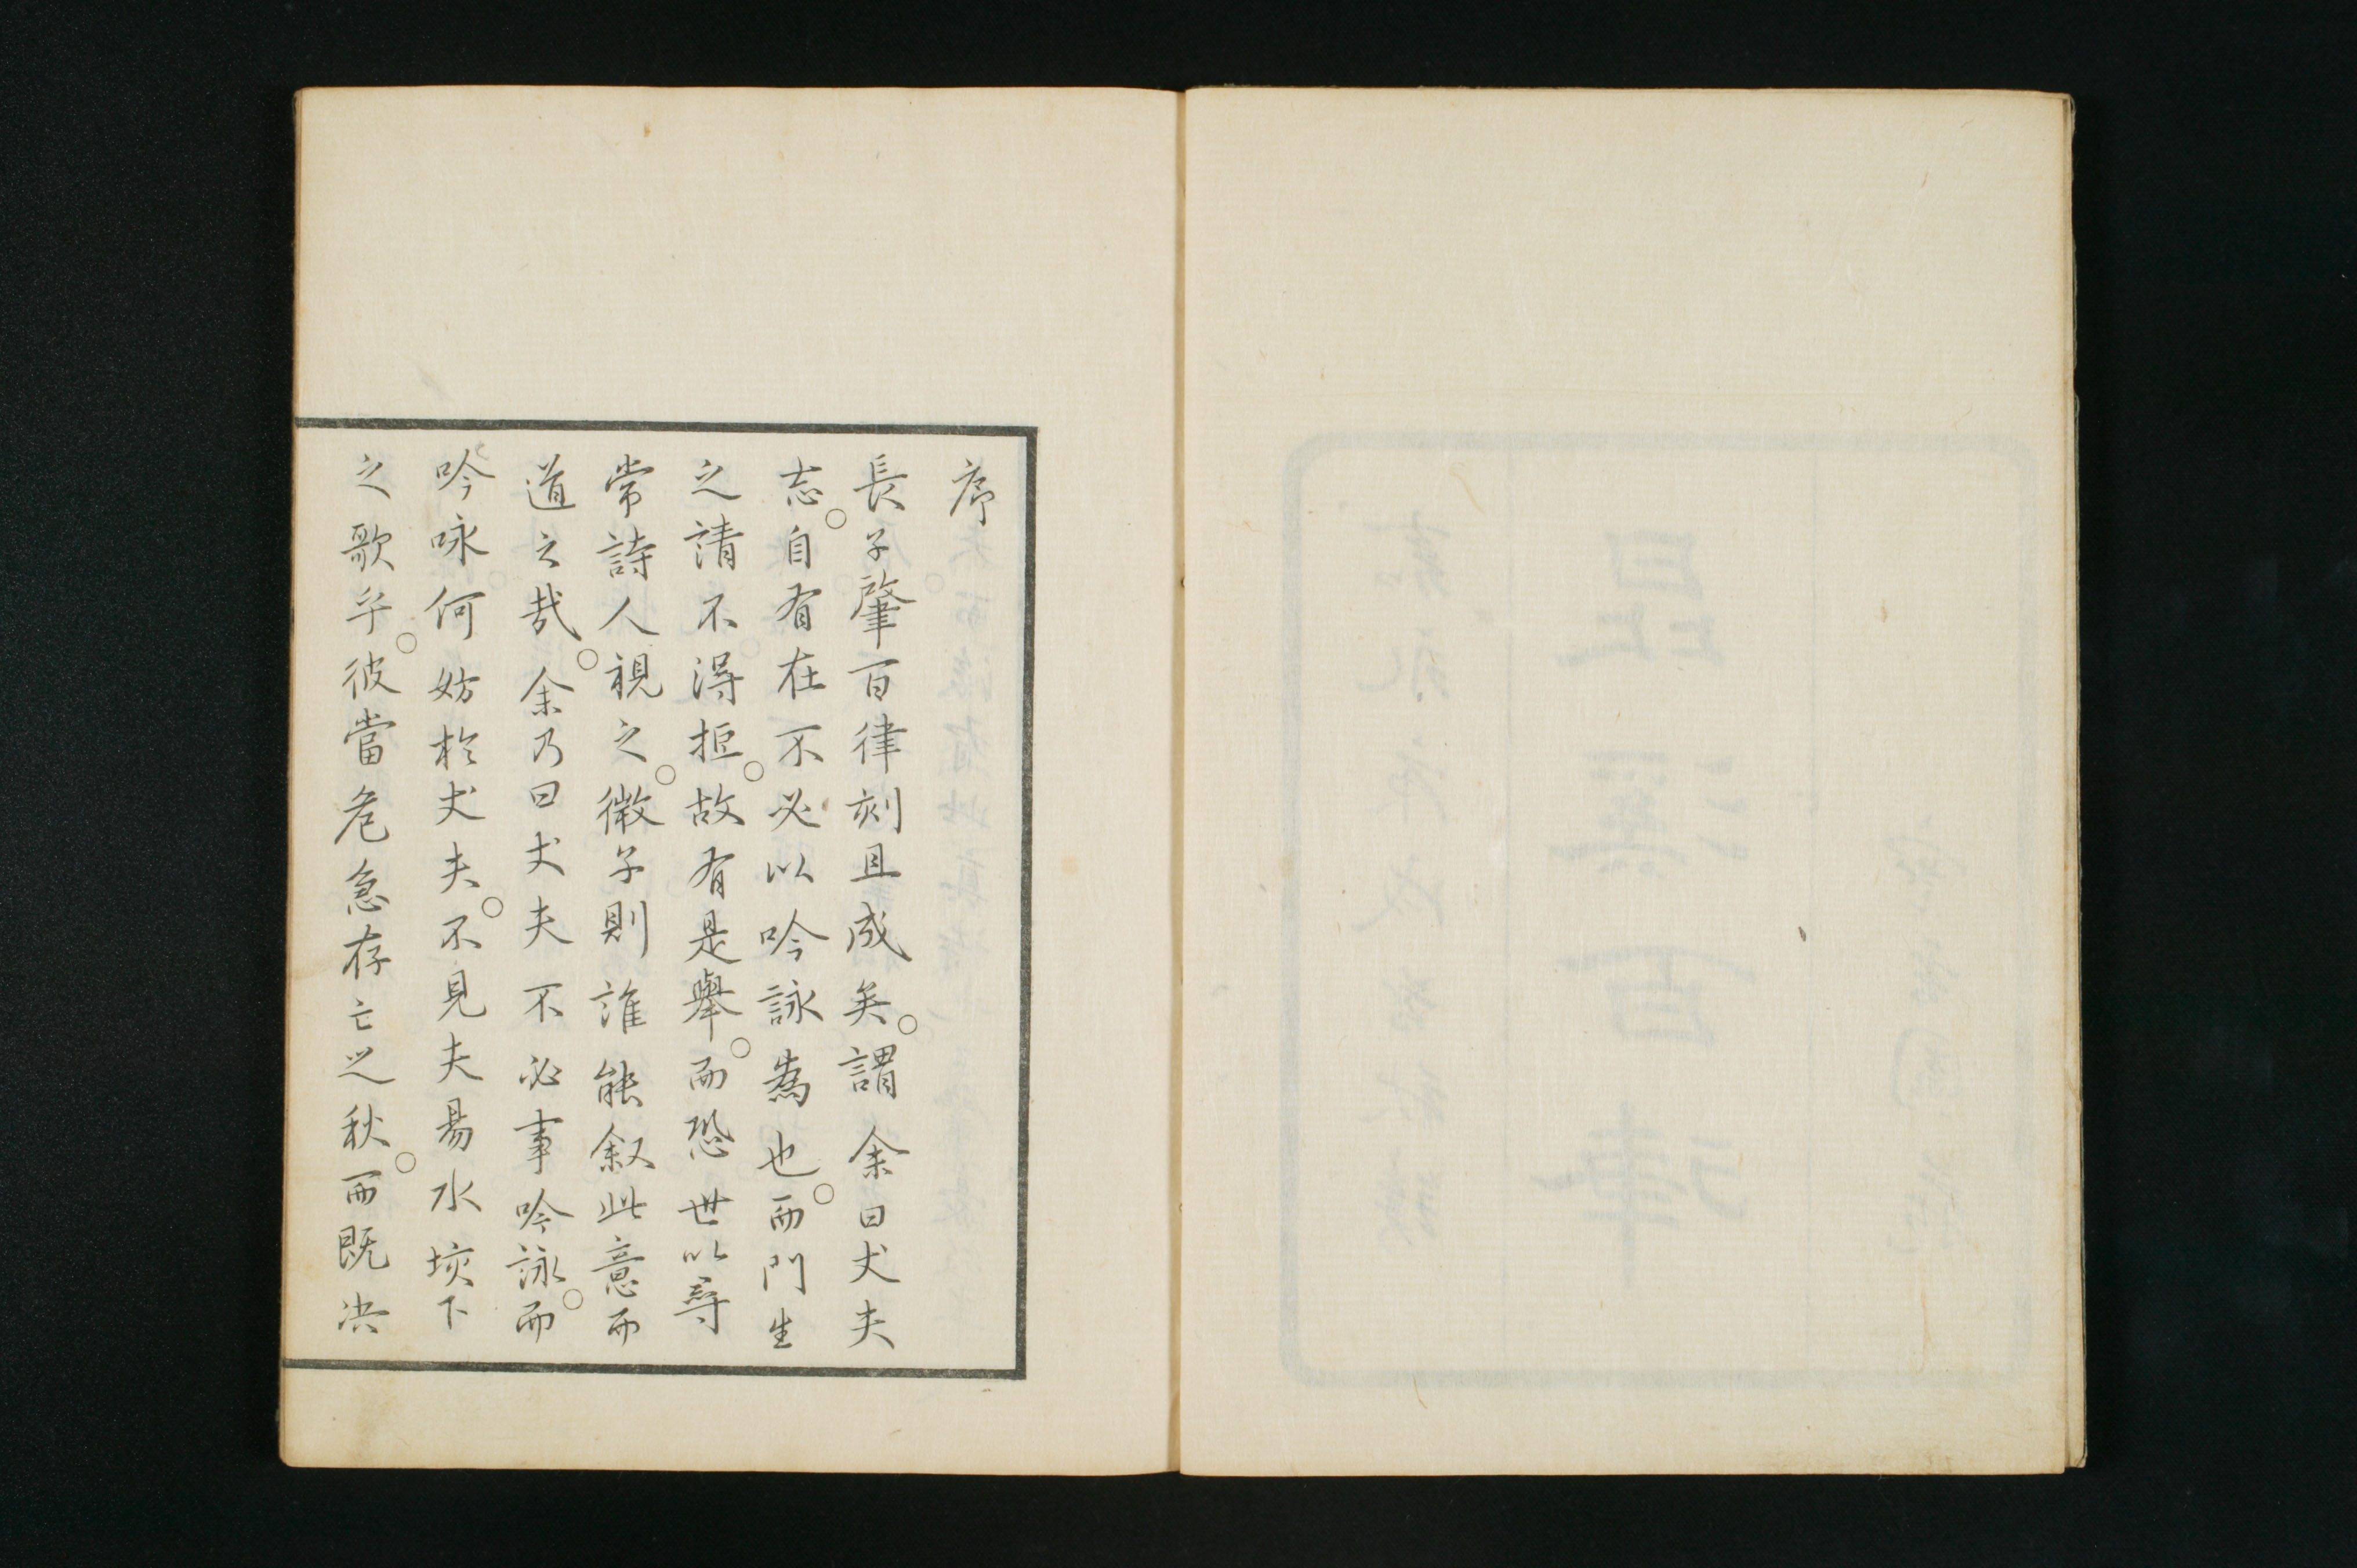 序
長子肇百律刻且成矣。謂余曰丈夫
志。自有在不必以吟詠為也。而門生
之請不得拒。故有是舉。而恐世以尋
常詩人視之。微子則誰能叙此意而
道之哉。余乃曰丈夫不必事吟詠。而
吟咏何妨於丈夫。不見夫易水垓下
之歌乎。彼當危急存亡之秋。而既决